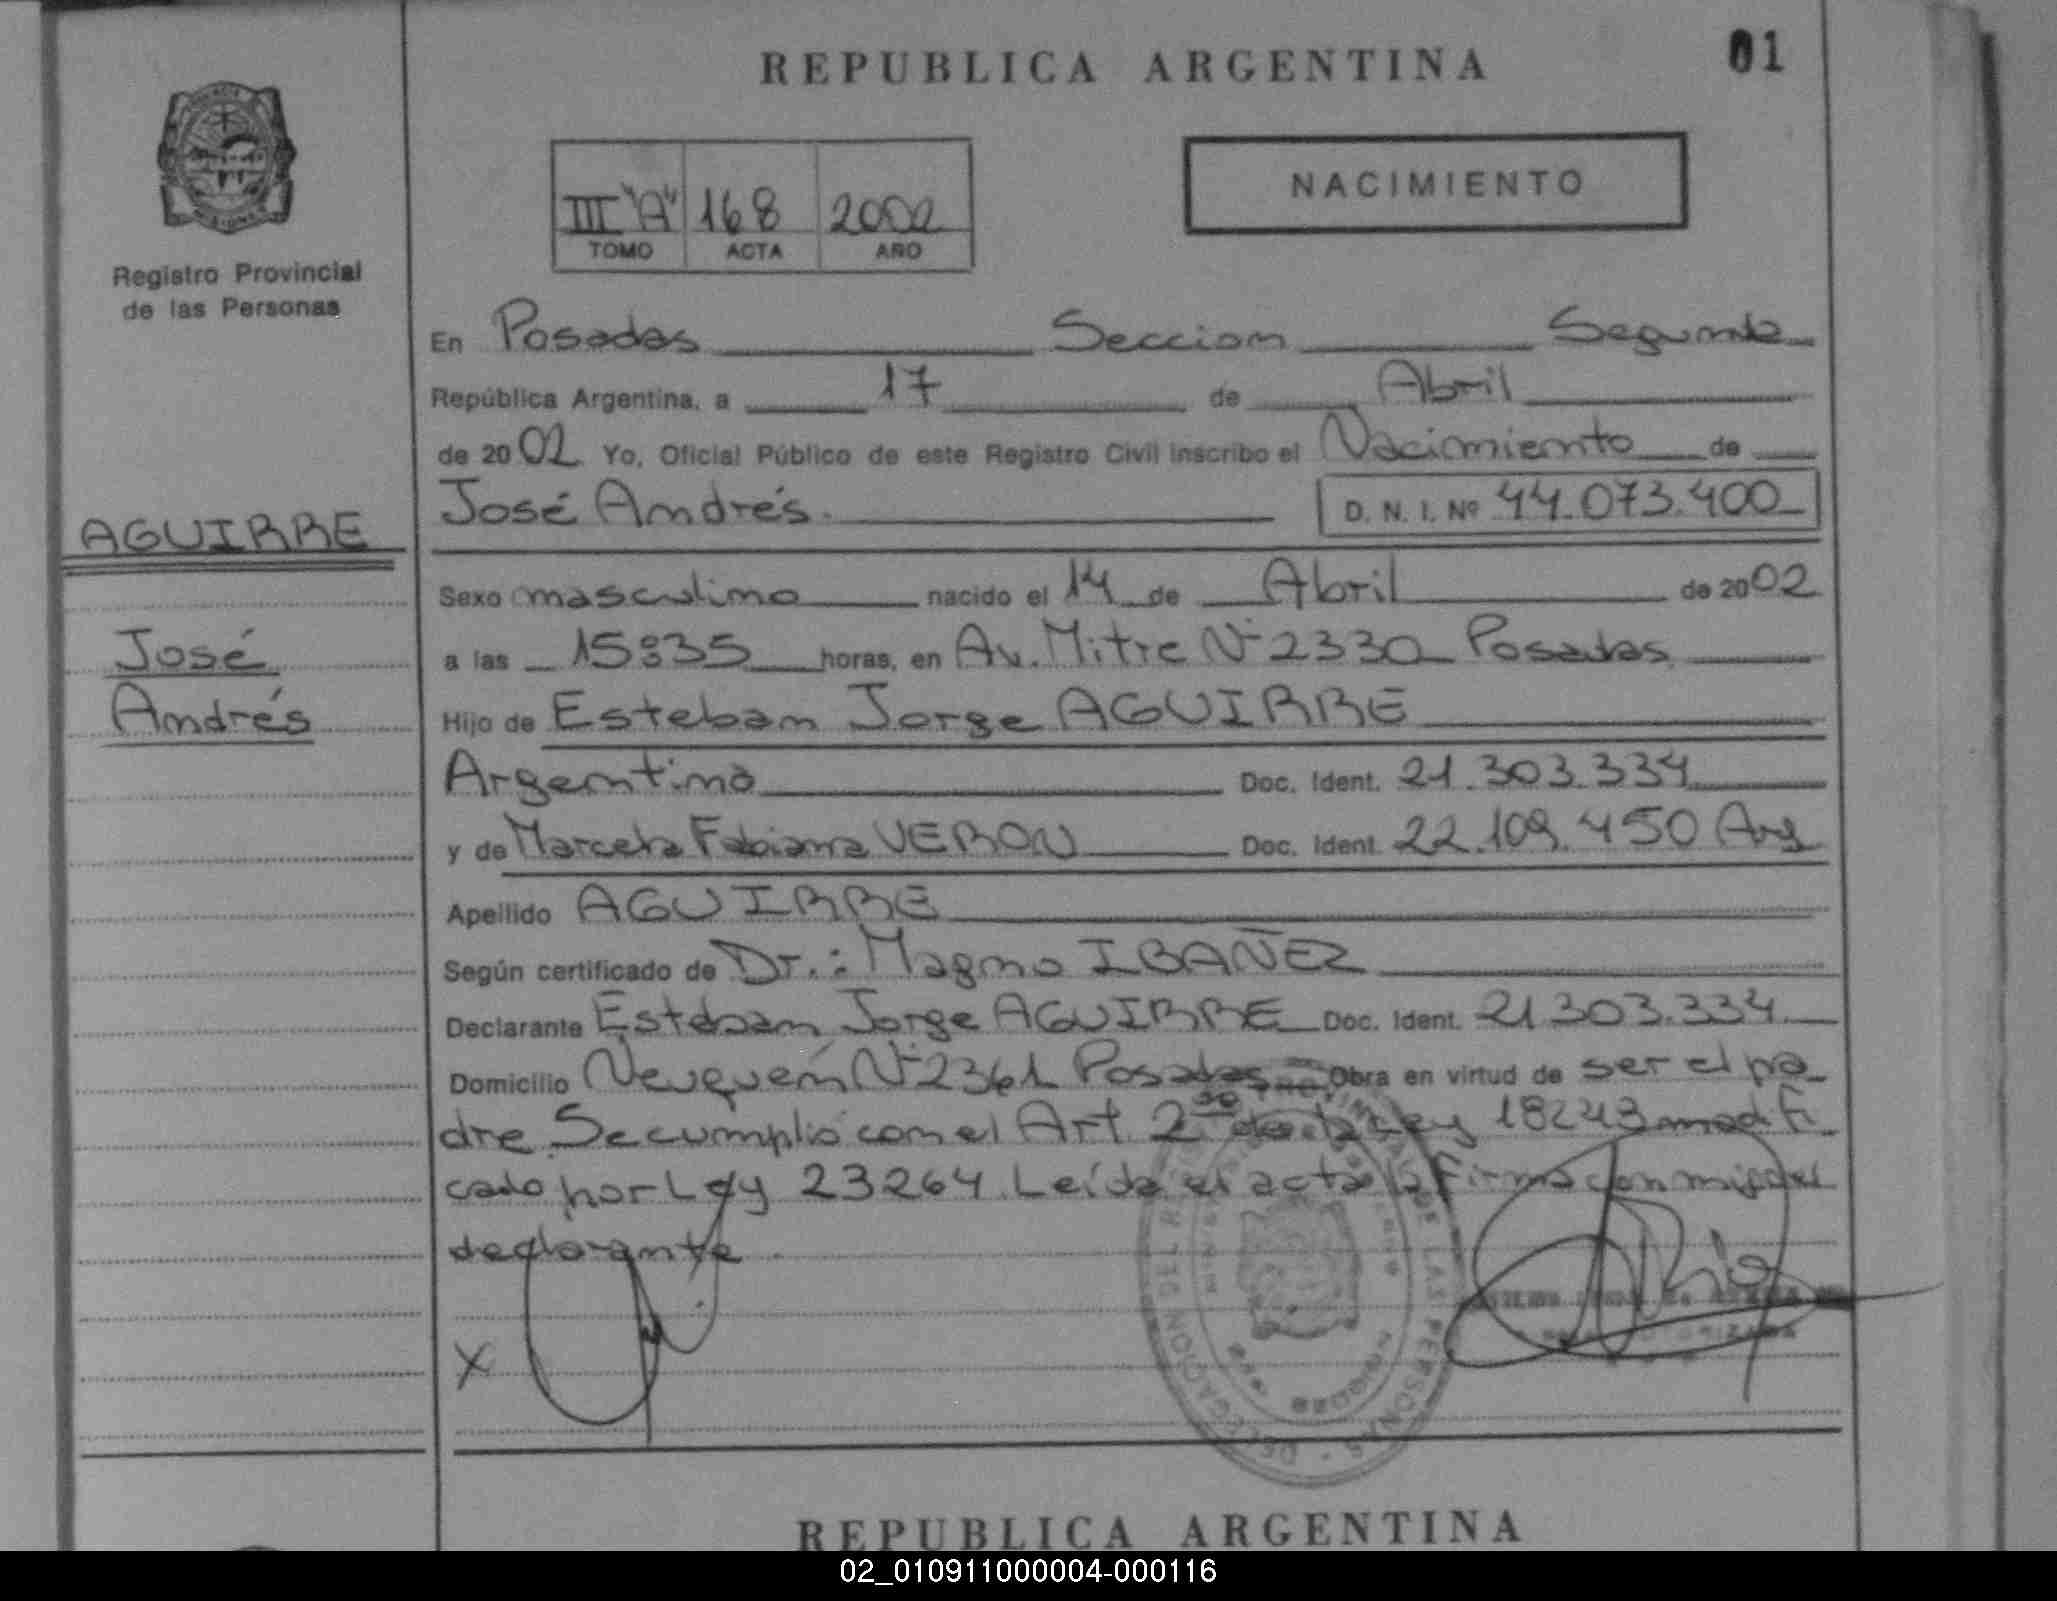 REPUBLICA ARGENTINA
01
III "A" 168 2002
TOMO ACTA AÑO
NACIMIENTO
Registro Provincial
de las Personas
AGUIRRE
José
Andrés
En Posadas Seccion Segunda
República Argentina, a 17 de Abril
de 2002 Yo, Oficial Público de este Registro Civil inscribo el Nacimiento de
José Andrés. D. N. I. Nº 44.073.400
Sexo masculino nacido el 14 de Abril de 2002
a las 15:35 horas, en Av. Mitre Nº 2330 Posadas
Hijo de Esteban Jorge AGUIRRE
Argentino Doc. Ident. 21.303.334
y de Marcela Fabiana VERON Doc. Ident. 22.109.450 Arg
Apellido AGUIRRE
Según certificado de Dr.: Magno IBAÑEZ
Declarante Esteban Jorge AGUIRRE Doc. Ident. 21303.334
Domicilio Neuquén Nº 2361 Posadas Obra en virtud de ser el pa
dre. Se cumplió con el Art. 2do de la Ley 18243 modifi
cado por Ley 23264. Leída el acta la firma conmigo el
declarante.
X
DELEGACION DEL
DE LAS PERSONAS
REPUBLICA ARGENTINA
02_010911000004-000116